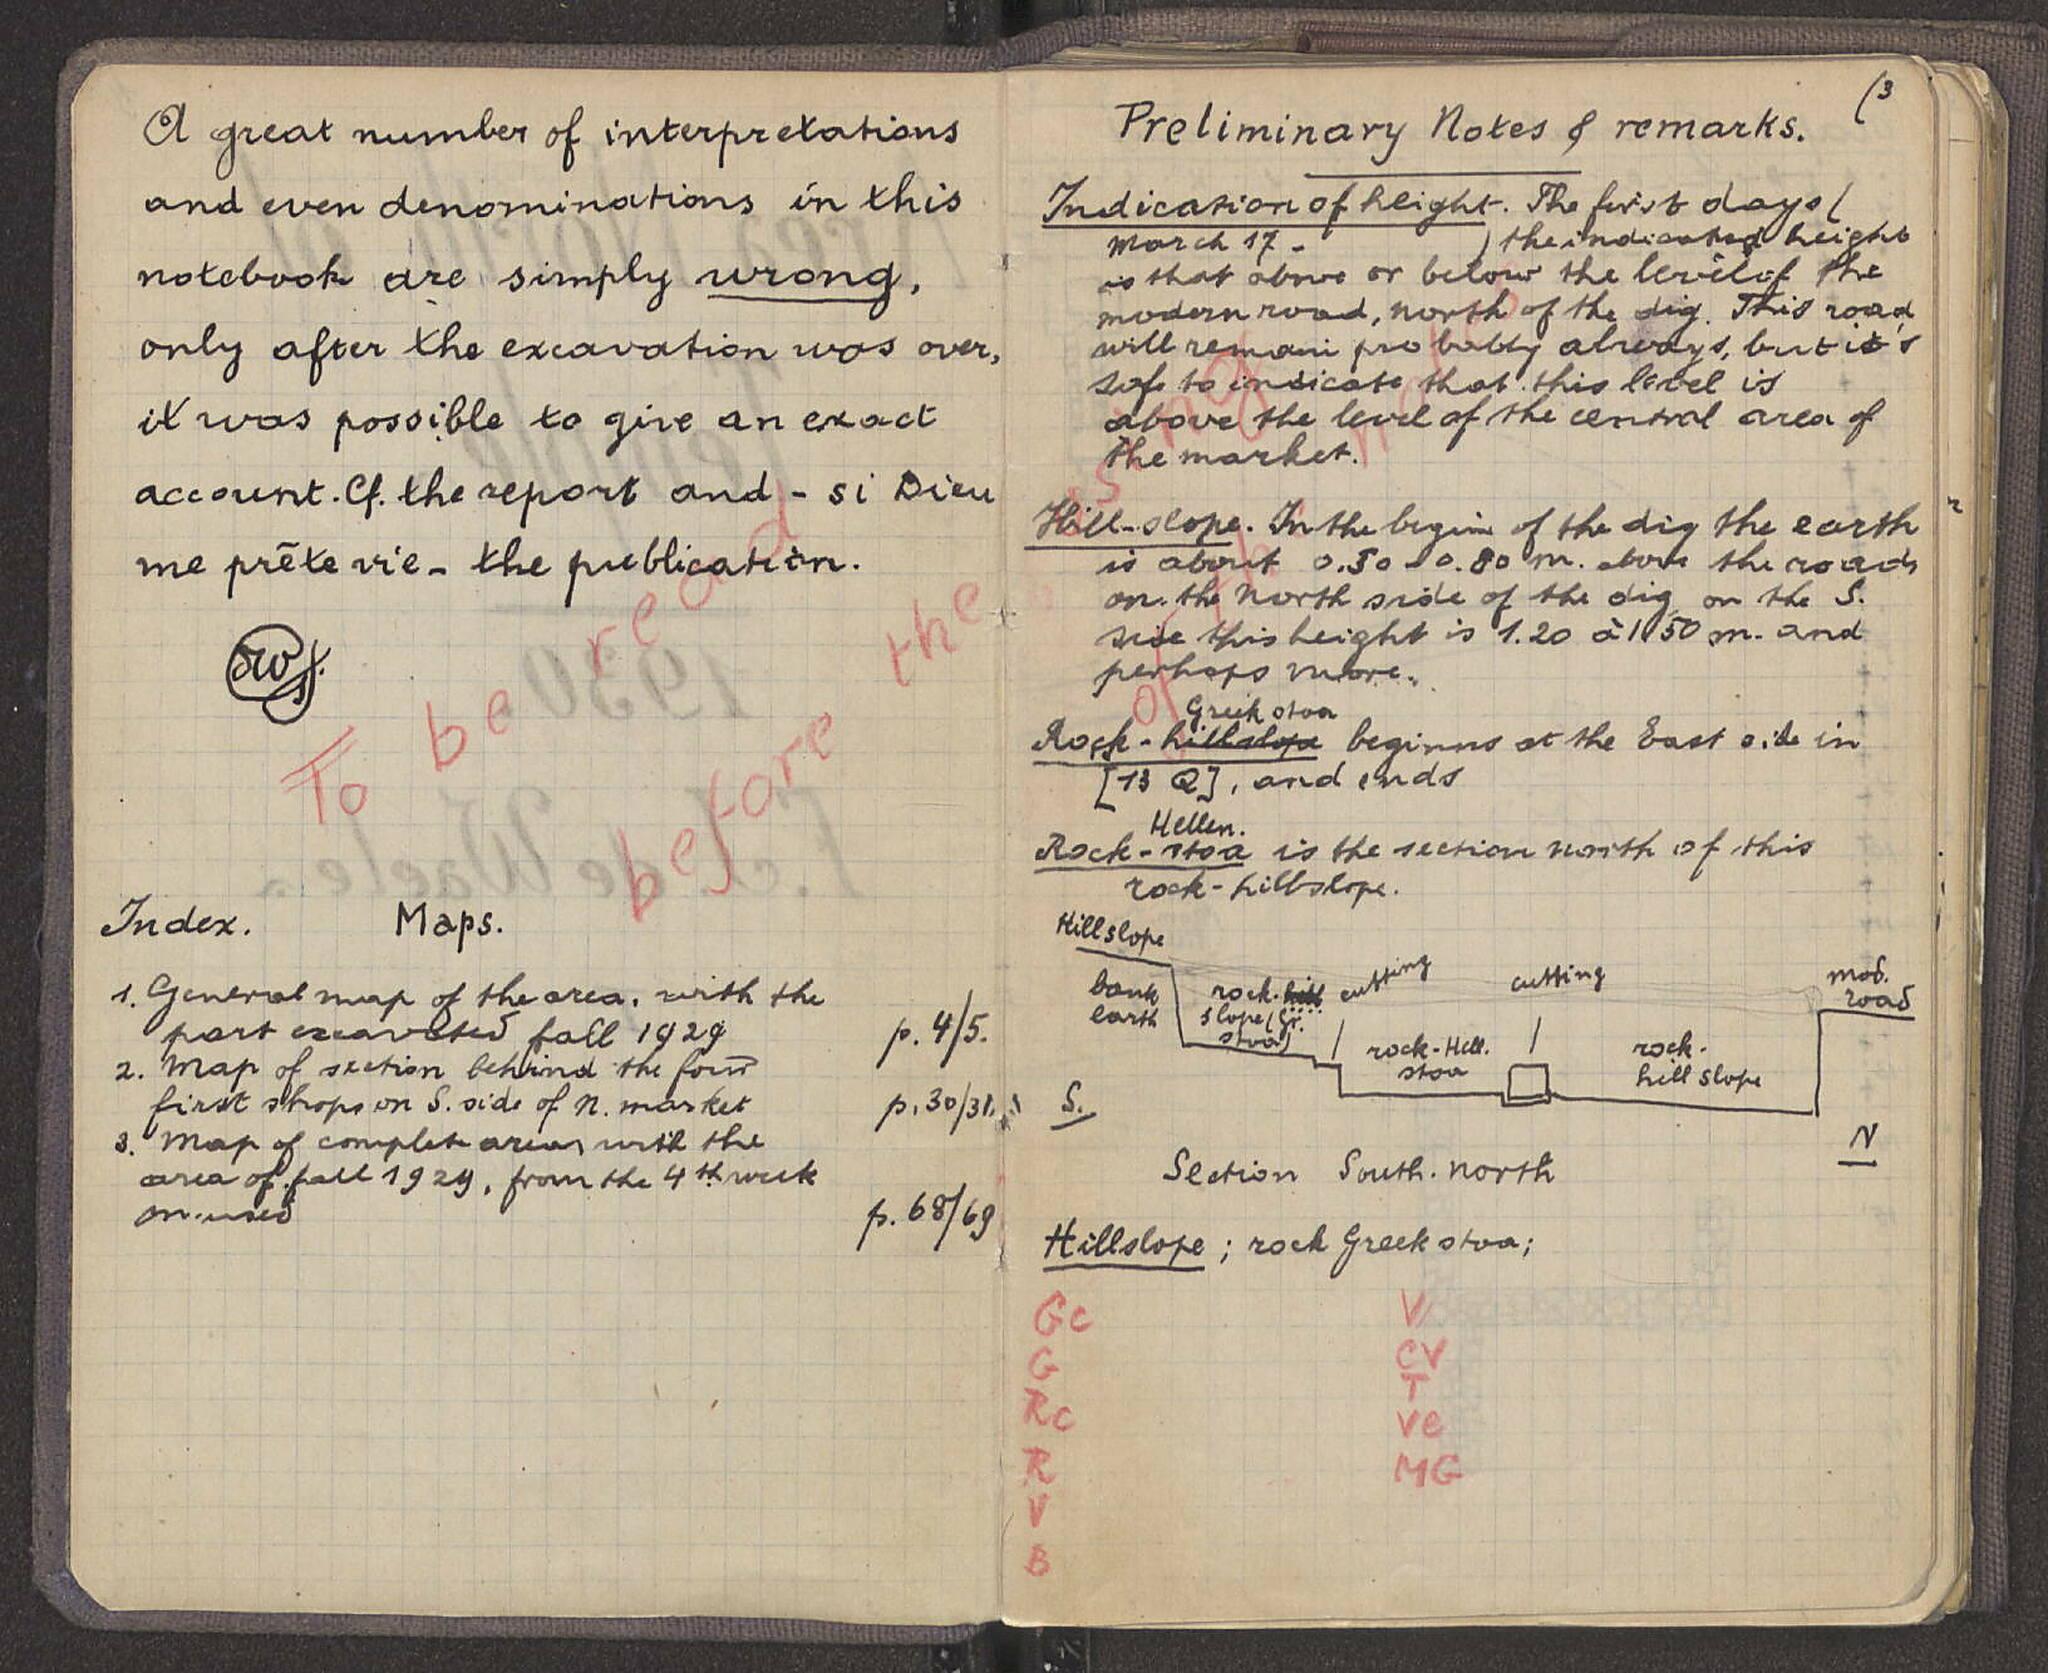 A great number of interpretations
and even denominations in this
notebook are simply wrong,
only after the excavation was over,
it was possible to give an exact
account. Cf. the report and - si Dieu
me prête vie - the publication.
To be read before the
Index. Maps.
1. General map of the area, with the
part excavated fall 1929 p. 4/5.
2. Map of section behind the four
first shops on S. side of N. market p. 30/31.
3. Map of complete area, with the
area of fall 1929, from the 4th week
on used p. 68/69
(3
Preliminary Notes & remarks.
Indication of height. The first days (
March 17 - ) the indicated height
is that above or below the level of the
modern road, north of the dig. This road
will remain probably always, but it's
safe to indicate that this level is
above the level of the central area of
the market.
Hill-slope. In the begin of the dig the earth
is about 0.50 - 0.80 m. above the road,
on the North side of the dig, on the S.
side this height is 1.20 à 1.50 m. and
perhaps more.
Greek stoa
Rock-hillslope beginns at the East side in
[13 Q], and ends
Hellen.
Rock-stoa is the section north of this
rock-hillslope.
Hillslope
bank
earth
rock-hill
slope (Gr.
stoa)
cutting
cutting
mod.
road
rock-Hell.
stoa
rock-
hill slope
S.
N
Section South-North
Hillslope; rock Greek stoa;
GC V
G CV
RC T
R VE
V MG
B